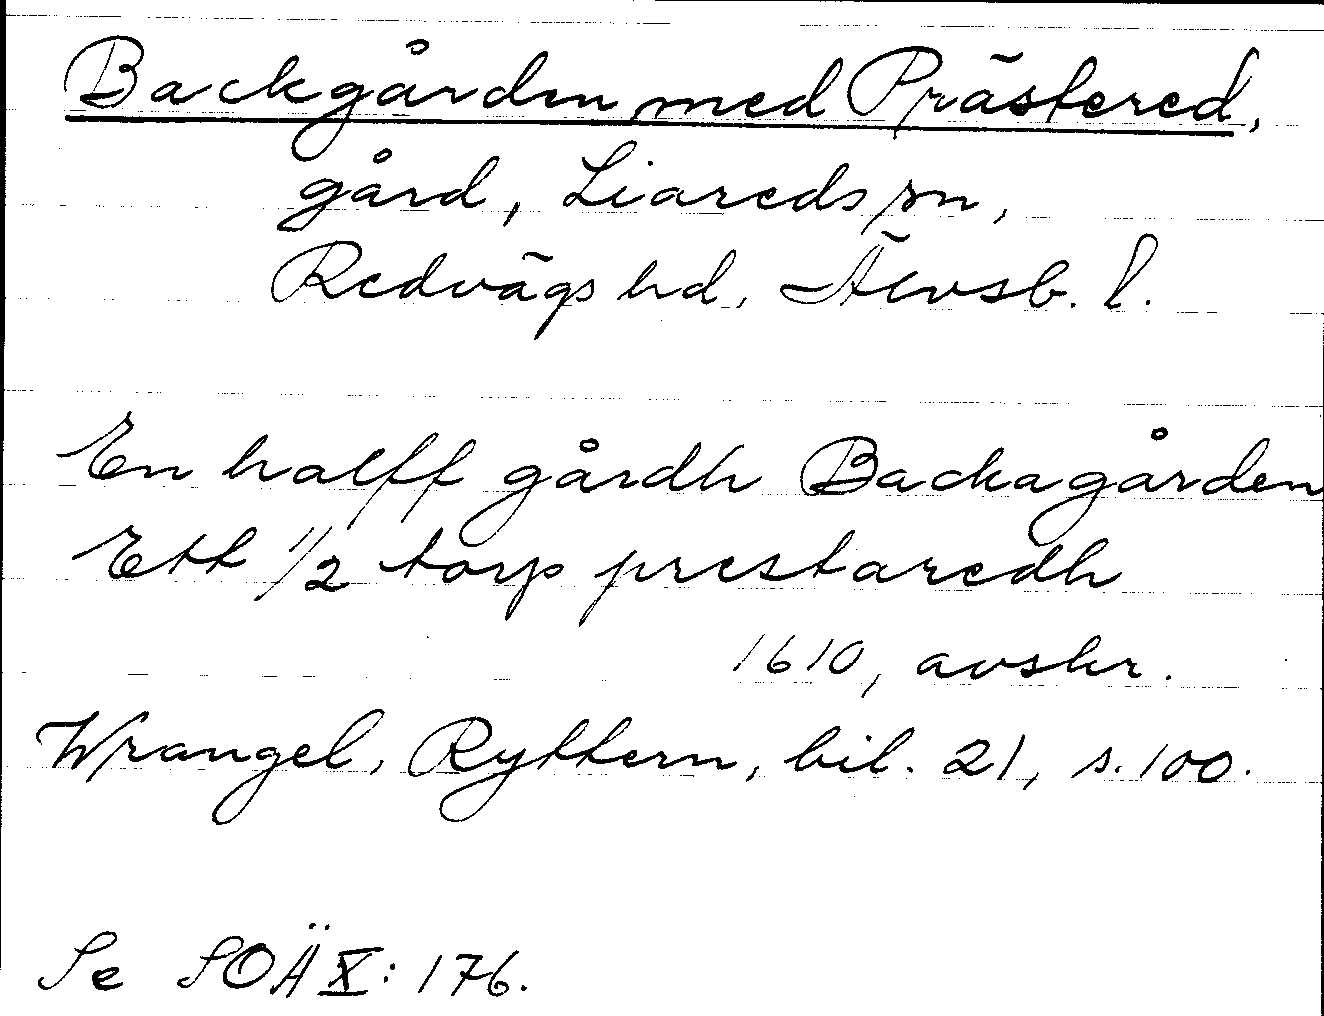 Backgården med Prästered,
gård, Liareds sn,
Redvägs hd, Älvsb. l.
En halff gårdh Backagården
Ett 1/2 torp prestaredh
1610, avskr.
Wrangel, Ryttern, bil. 21, s. 100.
Se SOÄ X: 176.